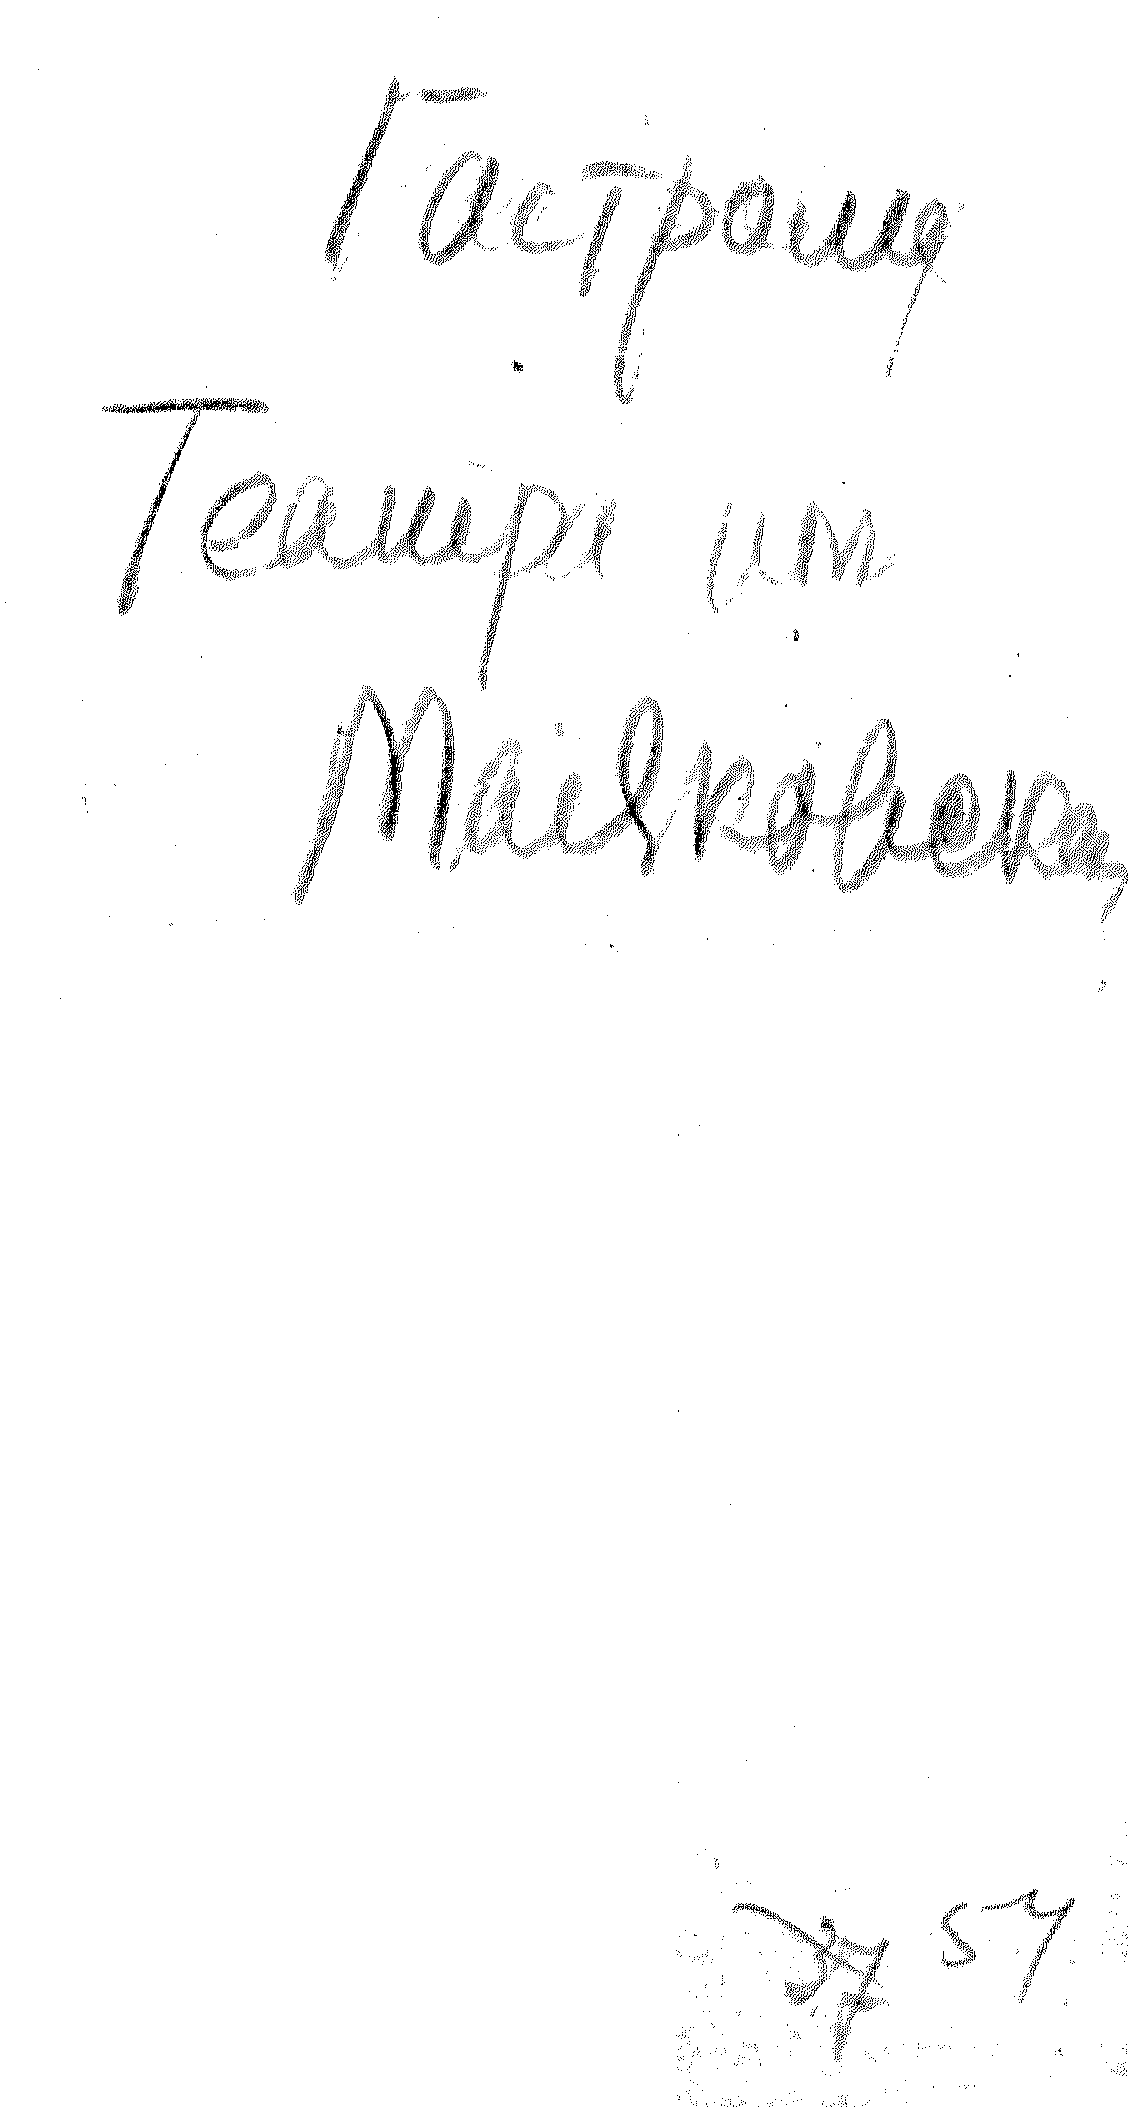 Гастроли
Театра им
Маяковског
57